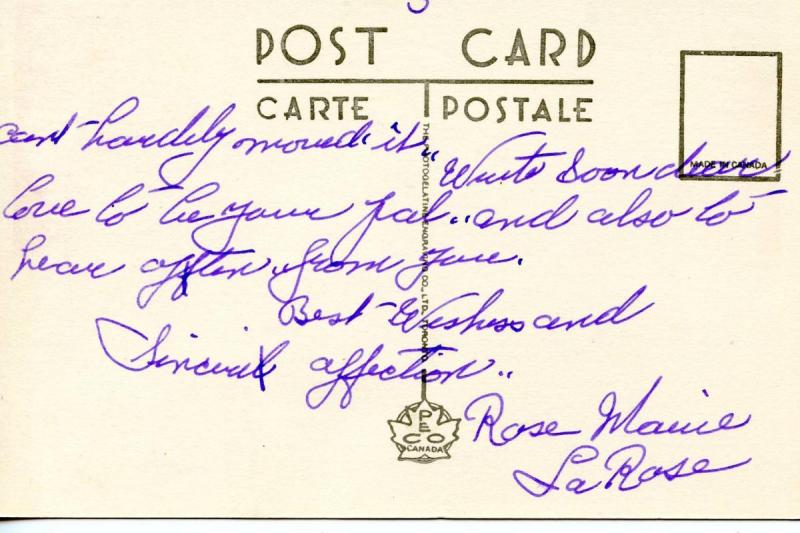 POST CARD
CARTE POSTALE
MADE IN CANADA
THE PHOTOGELATINE ENGRAVING CO., LTD. TORONTO
cant hardely moved it.. Write Soon dear
love to be your pal.. and also to
hear offten from you.
Best Wishess and
affection..
Rose Marie
La Rose
PECO
CANADA